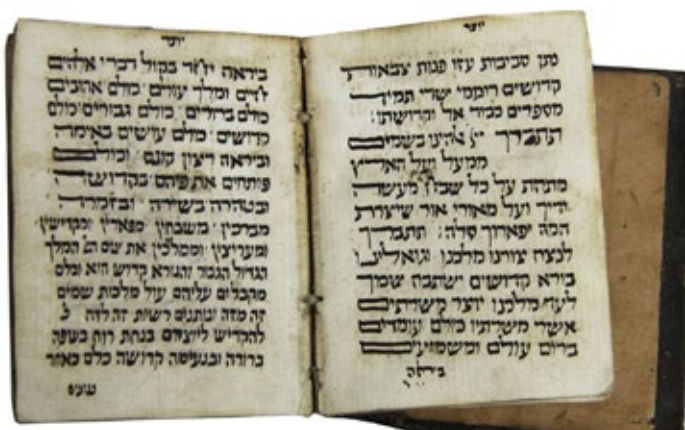 יוצר
נתן סביבות עזו פנות צבאות
קדושים רוממי שדי תמיד
מספרים כבוד אל וקדושתו:
תתברך יי אלהינו בשמים
ממעל ועל הארץ
מתחת על כל שבח מעשה
ידיך ועל מאורי אור שיצרת
המה יפארוך סלה: תתברך
לנצח צורנו מלכנו וגואלינו
בורא קדושים ישתבח שמך
לעד מלכנו יוצר משרתים
אשר משרתיו כולם עומדים
ברום עולם ומשמיעים
ביראה
יוצר
ביראה יחד בקול דברי אלהים
חיים ומלך עולם כולם אהובים
כולם ברורים כולם גבורים כולם
קדושים כולם עושים באימה
וביראה רצון קונם וכולם
פותחים את פיהם בקדושה
ובטהרה בשירה ובזמרה
מברכין משבחין מפארין ומקדישין
ומעריצין וממליכין את שם המלך
הגדול הגבור והנורא קדוש הוא וכלם
מקבלים עליהם עול מלכות שמים
זה מזה ונותנים רשות זה לזה
להקדיש ליוצרם בנחת רוח בשפה
ברורה ובנעימה קדושה כלם כאחד